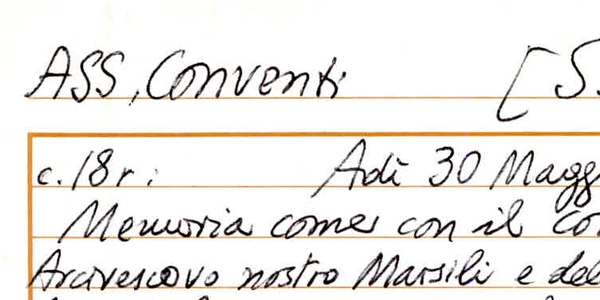 ASS, Conventi [S.
c. 18r: Adì 30 Magg
Memoria come con il Co
Arcivescovo nostro Marsili e del